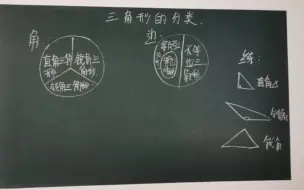 三角形的分类.
角:
直角三角形
锐角三角形
钝角三角形
边:
不等边三角形
练:
直角△
钝角△
锐角